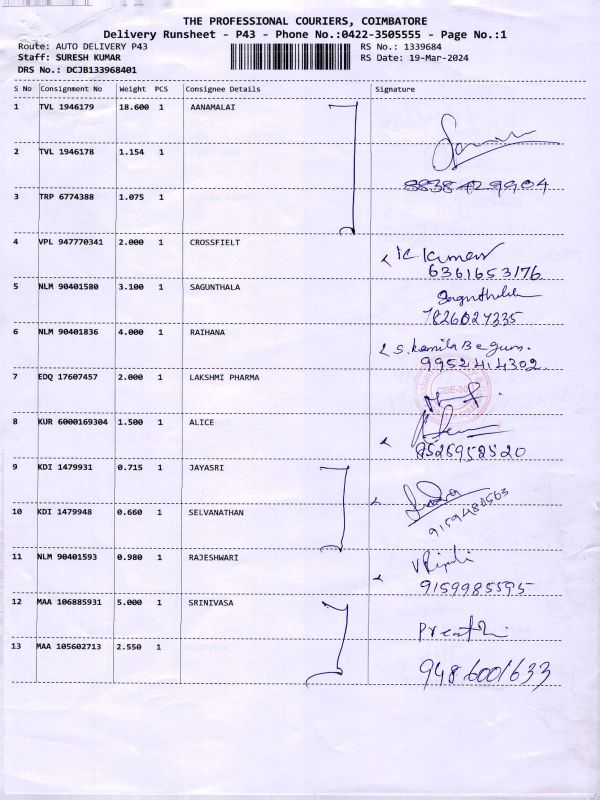 THE PROFESSIONAL COURIERS, COIMBATORE
Delivery Runsheet - P43 - Phone No.:0422-3505555 - Page No.:1
Route: AUTO DELIVERY P43 RS No.: 1339684
Staff: SURESH KUMAR RS Date: 19-Mar-2024
DRS No.: DCJB133968401
S No Consignment No Weight PCS Consignee Details Signature
1 TVL 1946179 18.600 1 AANAMALAI
2 TVL 1946178 1.154 1
8838429904
3 TRP 6774388 1.075 1
4 VPL 947770341 2.000 1 CROSSFIELT K. Kumar
6361653176
5 NLM 90401580 3.100 1 SAGUNTHALA Sagunthala
7826027335
6 NLM 90401836 4.000 1 RAIHANA S. Kamila Begum.
9952414302
7 EDQ 17607457 2.000 1 LAKSHMI PHARMA
8 KUR 6000169304 1.500 1 ALICE
8526958520
9 KDI 1479931 0.715 1 JAYASRI
10 KDI 1479948 0.660 1 SELVANATHAN
9159480563
11 NLM 90401593 0.980 1 RAJESHWARI
9159985595
12 MAA 106885931 5.000 1 SRINIVASA Preathi
13 MAA 105602713 2.550 1 9486001633